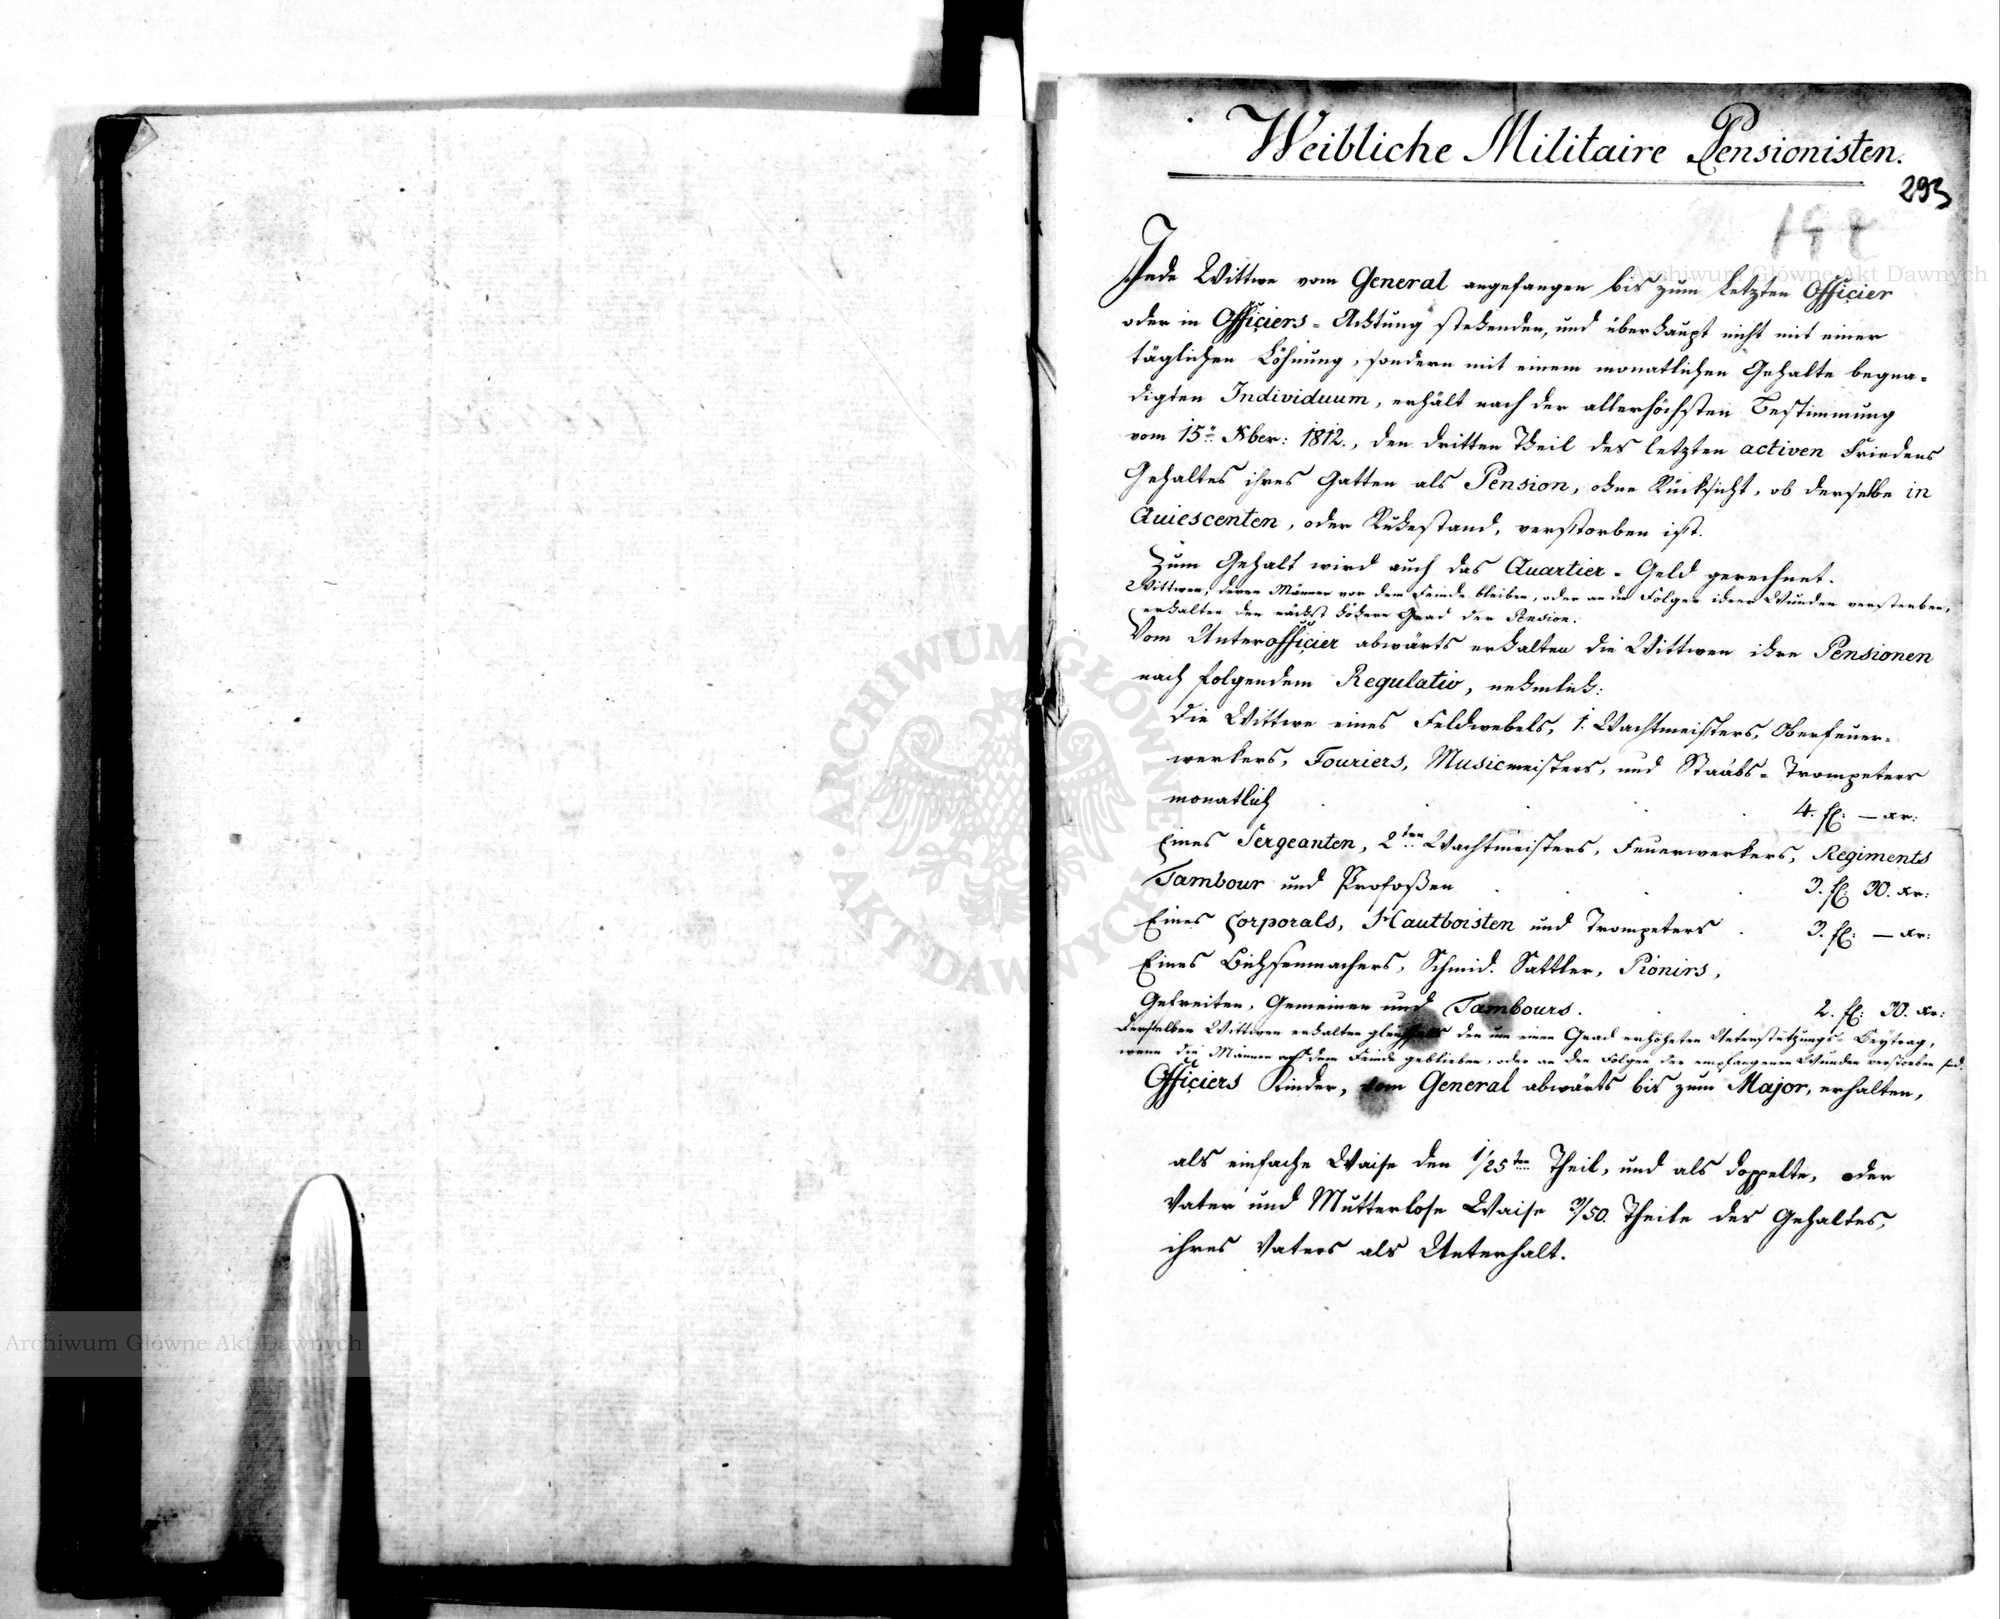 Weibliche Militaire Pensionisten.
293
Jede Wittwe vom General angefangen bis zum letzten Officier
oder in Officiers-Achtung stehenden, und überhaupt nicht mit einer
täglichen Löhnung, sondern mit einem monatlichen Gehalte begna-
digten Individuum, erhält nach der allerhöchsten Bestimmung
vom 15n Xber: 1812., den dritten Theil des letzten activen Friedens
Gehaltes ihres Gatten als Pension, ohne Rücksicht, ob derselbe in
Quiescenten, oder Ruhestand, verstorben ist.
Zum Gehalt wird auch das Quartier-Geld gerechnet.
Wittwen, deren Männer vor dem Feinde bleiben, oder an den Folgen ihrer Wunden versterben,
erhalten den nächst höhern Grad der Pension.
Vom Unterofficier abwärts erhalten die Wittwen ihre Pensionen
nach folgendem Regulativ, nehmlich:
Die Wittwe eines Feldwebels, 1. Wachtmeisters, Oberfeuer-
werkers, Fouriers, Musicmeisters, und Staabs-Trompeters
monatlich . . . . 4. fl: — xr:
Eines Sergeanten, 2ten Wachtmeisters, Feuerwerkers, Regiments
Tambour und Profoßen . . . . 3. fl: 30. xr:
Eines Corporals, Hautboisten und Trompeters . 3. fl: — xr:
Eines Büchsenmachers, Schmid. Sattler, Pionirs,
Gefreiten, Gemeinen und Tambours. . . 2. fl: 30. xr:
Derselben Wittwen erhalten gleichfalls den um einen Grad erhöheten Unterstützungs-Beytrag,
wenn die Männer vor dem Feinde geblieben, oder an den Folgen der empfangenen Wunden verstorben sind.
Officiers Kinder, vom General abwärts bis zum Major, erhalten,
als einfache Waise den 1/25ten Theil, und als doppelte, oder
Vater und Mutterlose Waise 3/50. Theile des Gehaltes,
ihres Vaters als Unterhalt.
Archiwum Główne Akt Dawnych
ARCHIWUM GŁÓWNE AKT DAWNYCH
Archiwum Główne Akt Dawnych